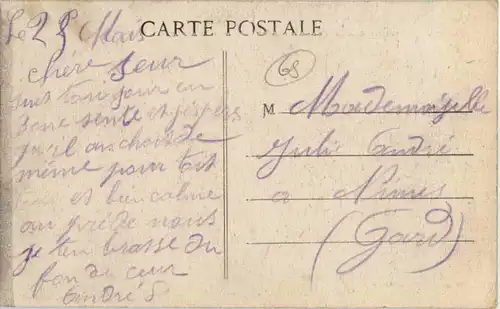 CARTE POSTALE
Le 25 Mais
chère seur
suis toujour en
bone sente et jesperes
qu'il an choi de
même pour toit
et bien calme
au près de nous
je ten brasse du
fon du ceur
André S
68
M Mademoiselle
Julie André
a Nimes
(Gard)